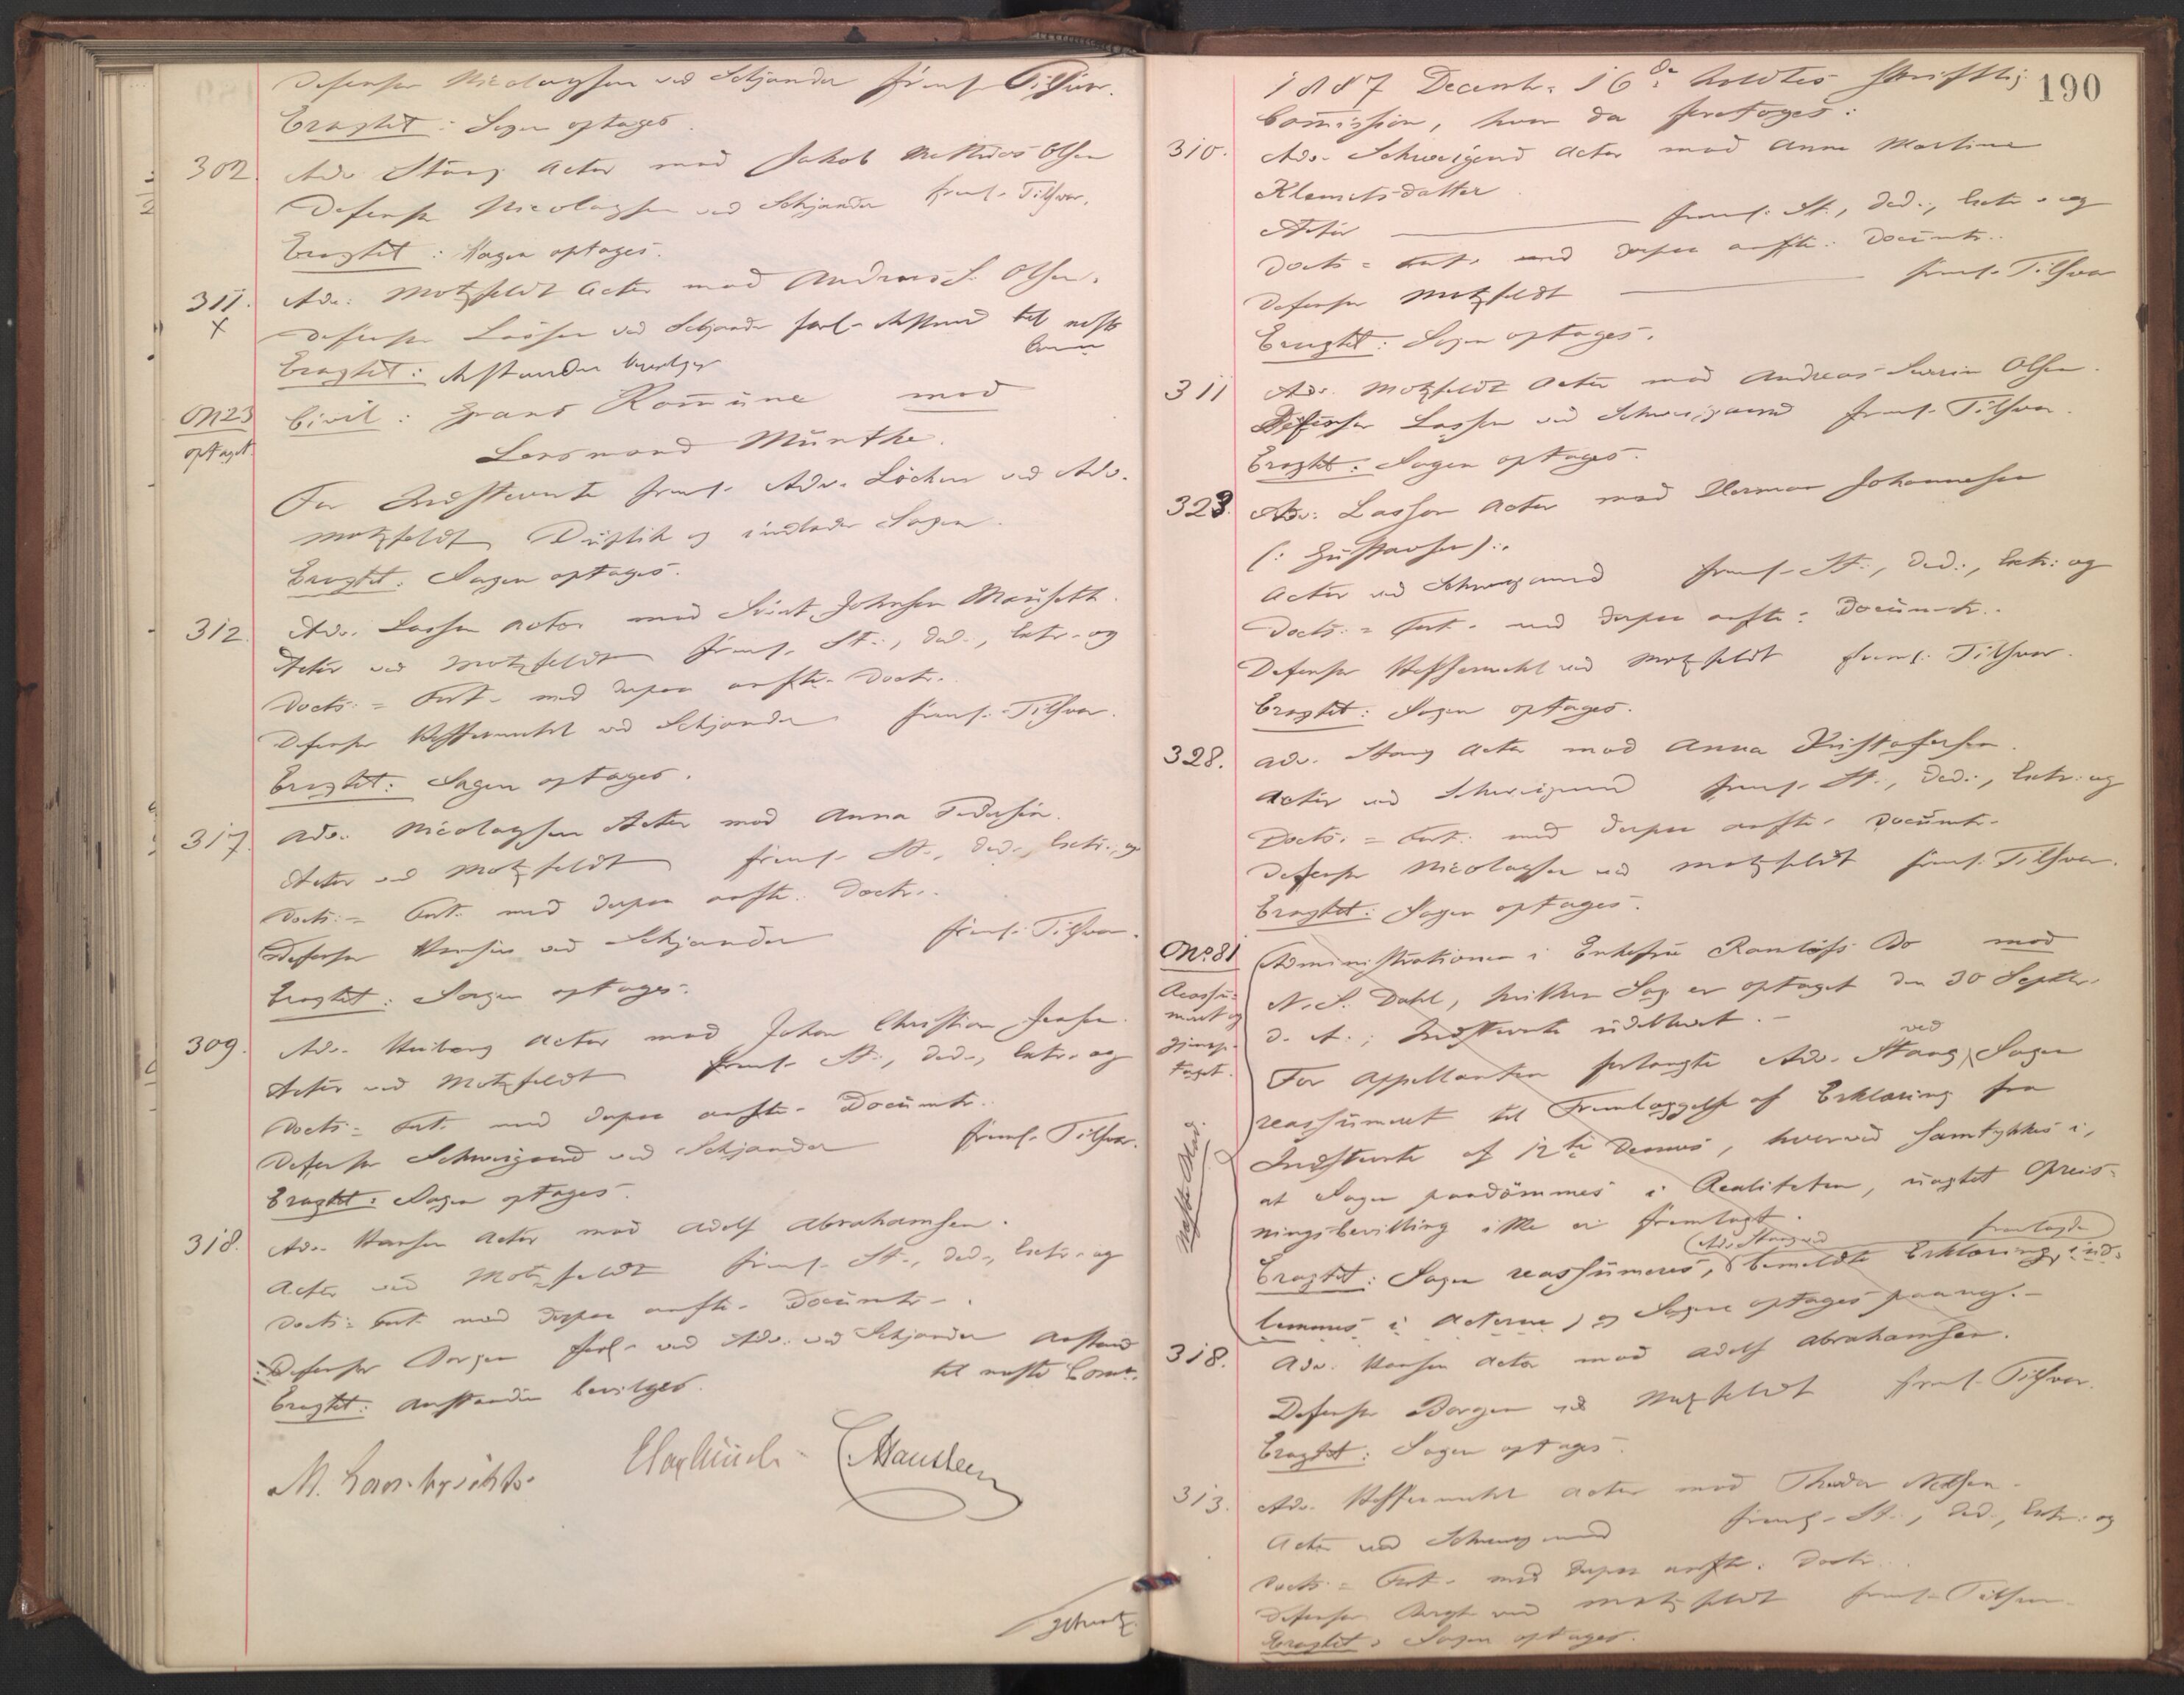 Defensor Nicolaysen ved Schjander freml. Tilsvar.
Eragtet: Sagen optages.
302. Adv. Stang Actor mod Jakob Mathias Olsen
Defensor Nicolaysen ved Schjander freml. Tilsvar.
Eragtet: Sagen optages.
311. Adv. Motzfeldt Actor mod Andreas S. Olsen.
X Defensor Lasson ved Schjander forl. Anstand til næste
Comm
Eragtet: Anstanden bevilges
No 23 Civil: Grans Kommune mod
optaget. Lensmand Münthe.
For Indstevnte freml. Adv. Løchen ved Adv.
Motzfeldt Duplik og indlader Sagen.
Eragtet: Sagen optages.
312. Adv. Lasson Actor mod Sivert Johnsen Mauseth.
Actor ved Motzfeldt freml. St., Ded., Extr. og
Docts: = Fort. med derpaa anfte. Doctr.
Defensor Heffermehl ved Schjander freml. Tilsvar.
Eragtet: Sagen optages.
317. Adv. Nicolaysen Actor mod Anna Pedersen.
Actor ved Motzfeldt freml. St., Ded., Extr. og
Docts: = Fort. med derpaa anfte. Doctr.
Defensor Hansen ved Schjander freml. Tilsvar.
Eragtet: Sagen optages.
309. Adv. Heiberg Actor mod Johan Christian Jensen.
Actor ved Motzfeldt freml. St., Ded., Extr. og
Docts: = Fort. med derpaa anfte. Documtr.
Defensor Schweigaard ved Schjander freml. Tilsvar.
Eragtet: Sagen optages.
318. Adv. Hansen Actor mod Adolf Abrahamsen.
Actor ved Motzfeldt freml. St., Ded., Extr. og
Docts: = Fort. med derpaa anfte. Documtr.
Defensor Borgen forl. ved Adv. ved Schjander Anstand
til næste Comm.
Eragtet: Anstanden bevilges.
M. Lambrechts. E Hagb Münch C Hansteen
190
1887 Decembr. 16de holdtes skriftlig
Commission, hvor da foretoges:
310. Adv. Schweigaard Actor mod Anne Martine
Klemetsdatter.
Actor freml. St., Ded., Extr. og
Docts: = Fort. med derpaa anfte. Documtr.
Defensor Motzfeldt freml. Tilsvar
Eragtet: Sagen optages.
311 Adv. Motzfeldt Actor mod Andreas Severin Olsen.
Defensor Lasson ved Schweigaard freml. Tilsvar.
Eragtet: Sagen optages.
323. Adv. Lasson Actor mod Herman Johannesen
(: Gustavsen :).
Actor ved Schweigaard freml. St., Ded., Extr. og
Docts: = Fort. med derpaa anfte. Documtr.
Defensor Heffermehl ved Motzfeldt freml. Tilsvar.
Eragtet: Sagen optages.
328. Adv. Stang Actor mod Anna Kristofersen.
Actor ved Schweigaard freml. St., Ded., Extr. og
Docts: = Fort. med derpaa anfte. Documtr.
Defensor Nicolaysen ved Motzfeldt freml. Tilsvar.
Eragtet: Sagen optages.
No 81 Administrationen i Enkefru Ramløfs Bo mod
Reassu- N. S. Dahl, hvilken Sag er optaget den 30 Septbr.
meret og d. A.; Indstevnte udebleven.
gjenop- For Appellanten forlangte Adv. Stang ved Sagen
taget. reassumeret til Fremlæggelse af Erklæring fra
Indstevnte af 12te Dennes, hvorved samtykkes i,
at Sagen paadømmes i Realiteten, uagtet Opreis-
ningsbevilling ikke er fremlagt.
Næste Blad.
Eragtet: Sagen reassumeres, Adv. Stang ved bemeldte Erklæring fremlagde ind-
lemmes i Acterne, og Sagen optages paany.
318. Adv. Hansen Actor mod Adolf Abrahamsen.
Defensor Borgen ved Motzfeldt freml. Tilsvar.
Eragtet: Sagen optages.
313. Adv. Heffermehl Actor mod Theodor Nielsen.
Actor ved Schweigaard freml. St., Ded., Extr. og
Docts: = Fort. med derpaa anfte. Doctr.
Defensor ved Motzfeldt freml. Tilsvar.
Eragtet: Sagen optages.